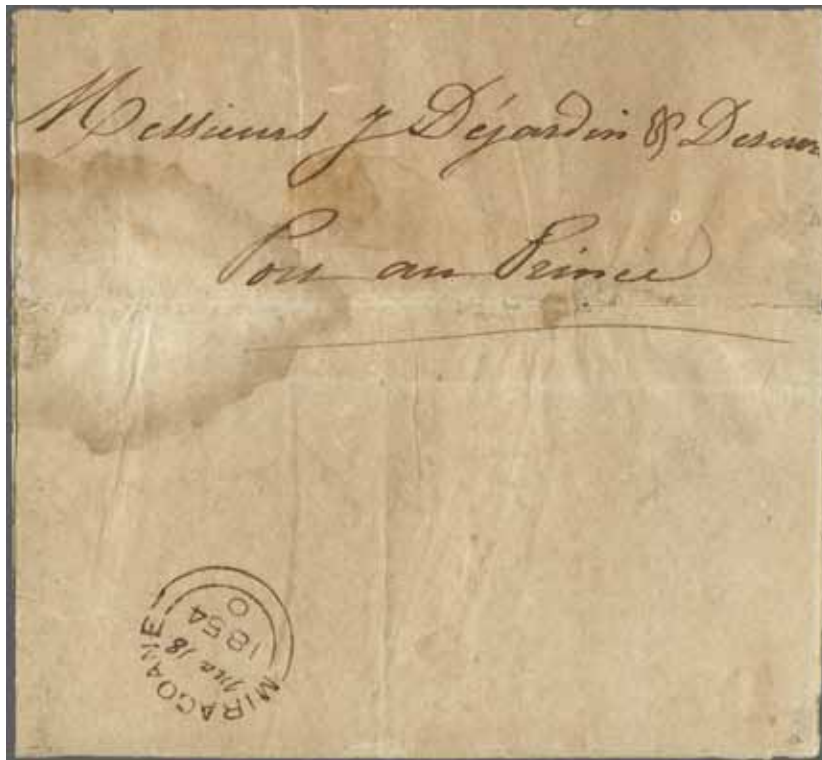 Messieurs J Déjardin &
Port au Prince
MIRAGOANE
18
1854
O